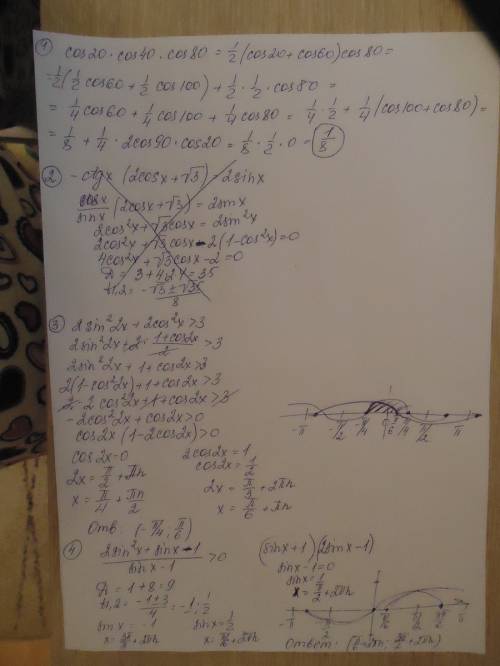 ① cos20 · cos40 · cos80 = 1/2 (cos20 + cos60) cos80 =
= 1/2 (1/2 cos60 + 1/2 cos100) + 1/2 · 1/2 · cos80 =
= 1/4 cos60 + 1/4 cos100 + 1/4 cos80 = 1/4 · 1/2 + 1/4 (cos100 + cos80) =
= 1/8 + 1/4 · 2cos90 · cos20 = 1/8 · 1/2 · 0 = 1/8
② -ctgx (2cosx + √3) = 2sinx
cosx/sinx (2cosx + √3) = 2sinx
2cos²x + √3cosx = 2sin²x
2cos²x + √3cosx - 2(1-cos²x) = 0
4cos²x + √3cosx - 2 = 0
D = 3 + 4·2·4 = 35
t1,2 = -√3 ± √35 / 8
③ 2sin²2x + 2cos²x > 3
2sin²2x + 2 · 1+cos2x/2 > 3
2sin²2x + 1 + cos2x > 3
2(1-cos²2x) + 1 + cos2x > 3
2 - 2cos²2x + 1 + cos2x > 3
-2cos²2x + cos2x > 0
cos2x (1-2cos2x) > 0
cos2x = 0 2cos2x = 1
2x = π/2 + πn cos2x = 1/2
x = π/4 + πn/2 2x = π/3 + 2πn
x = π/6 + πn
-π -π/2 -π/4 π/6 π/4 π/2 π
Отв: (-π/4; π/6)
④ 2sin²x + sinx - 1 / sinx - 1 > 0 (sinx+1)(2sinx-1)
D = 1 + 8 = 9 sinx - 1 = 0
t1,2 = -1±3/4 = -1; 1/2 sinx = 1
x = π/2 + 2πn
sinx = -1 sinx = 1/2
Ответ: